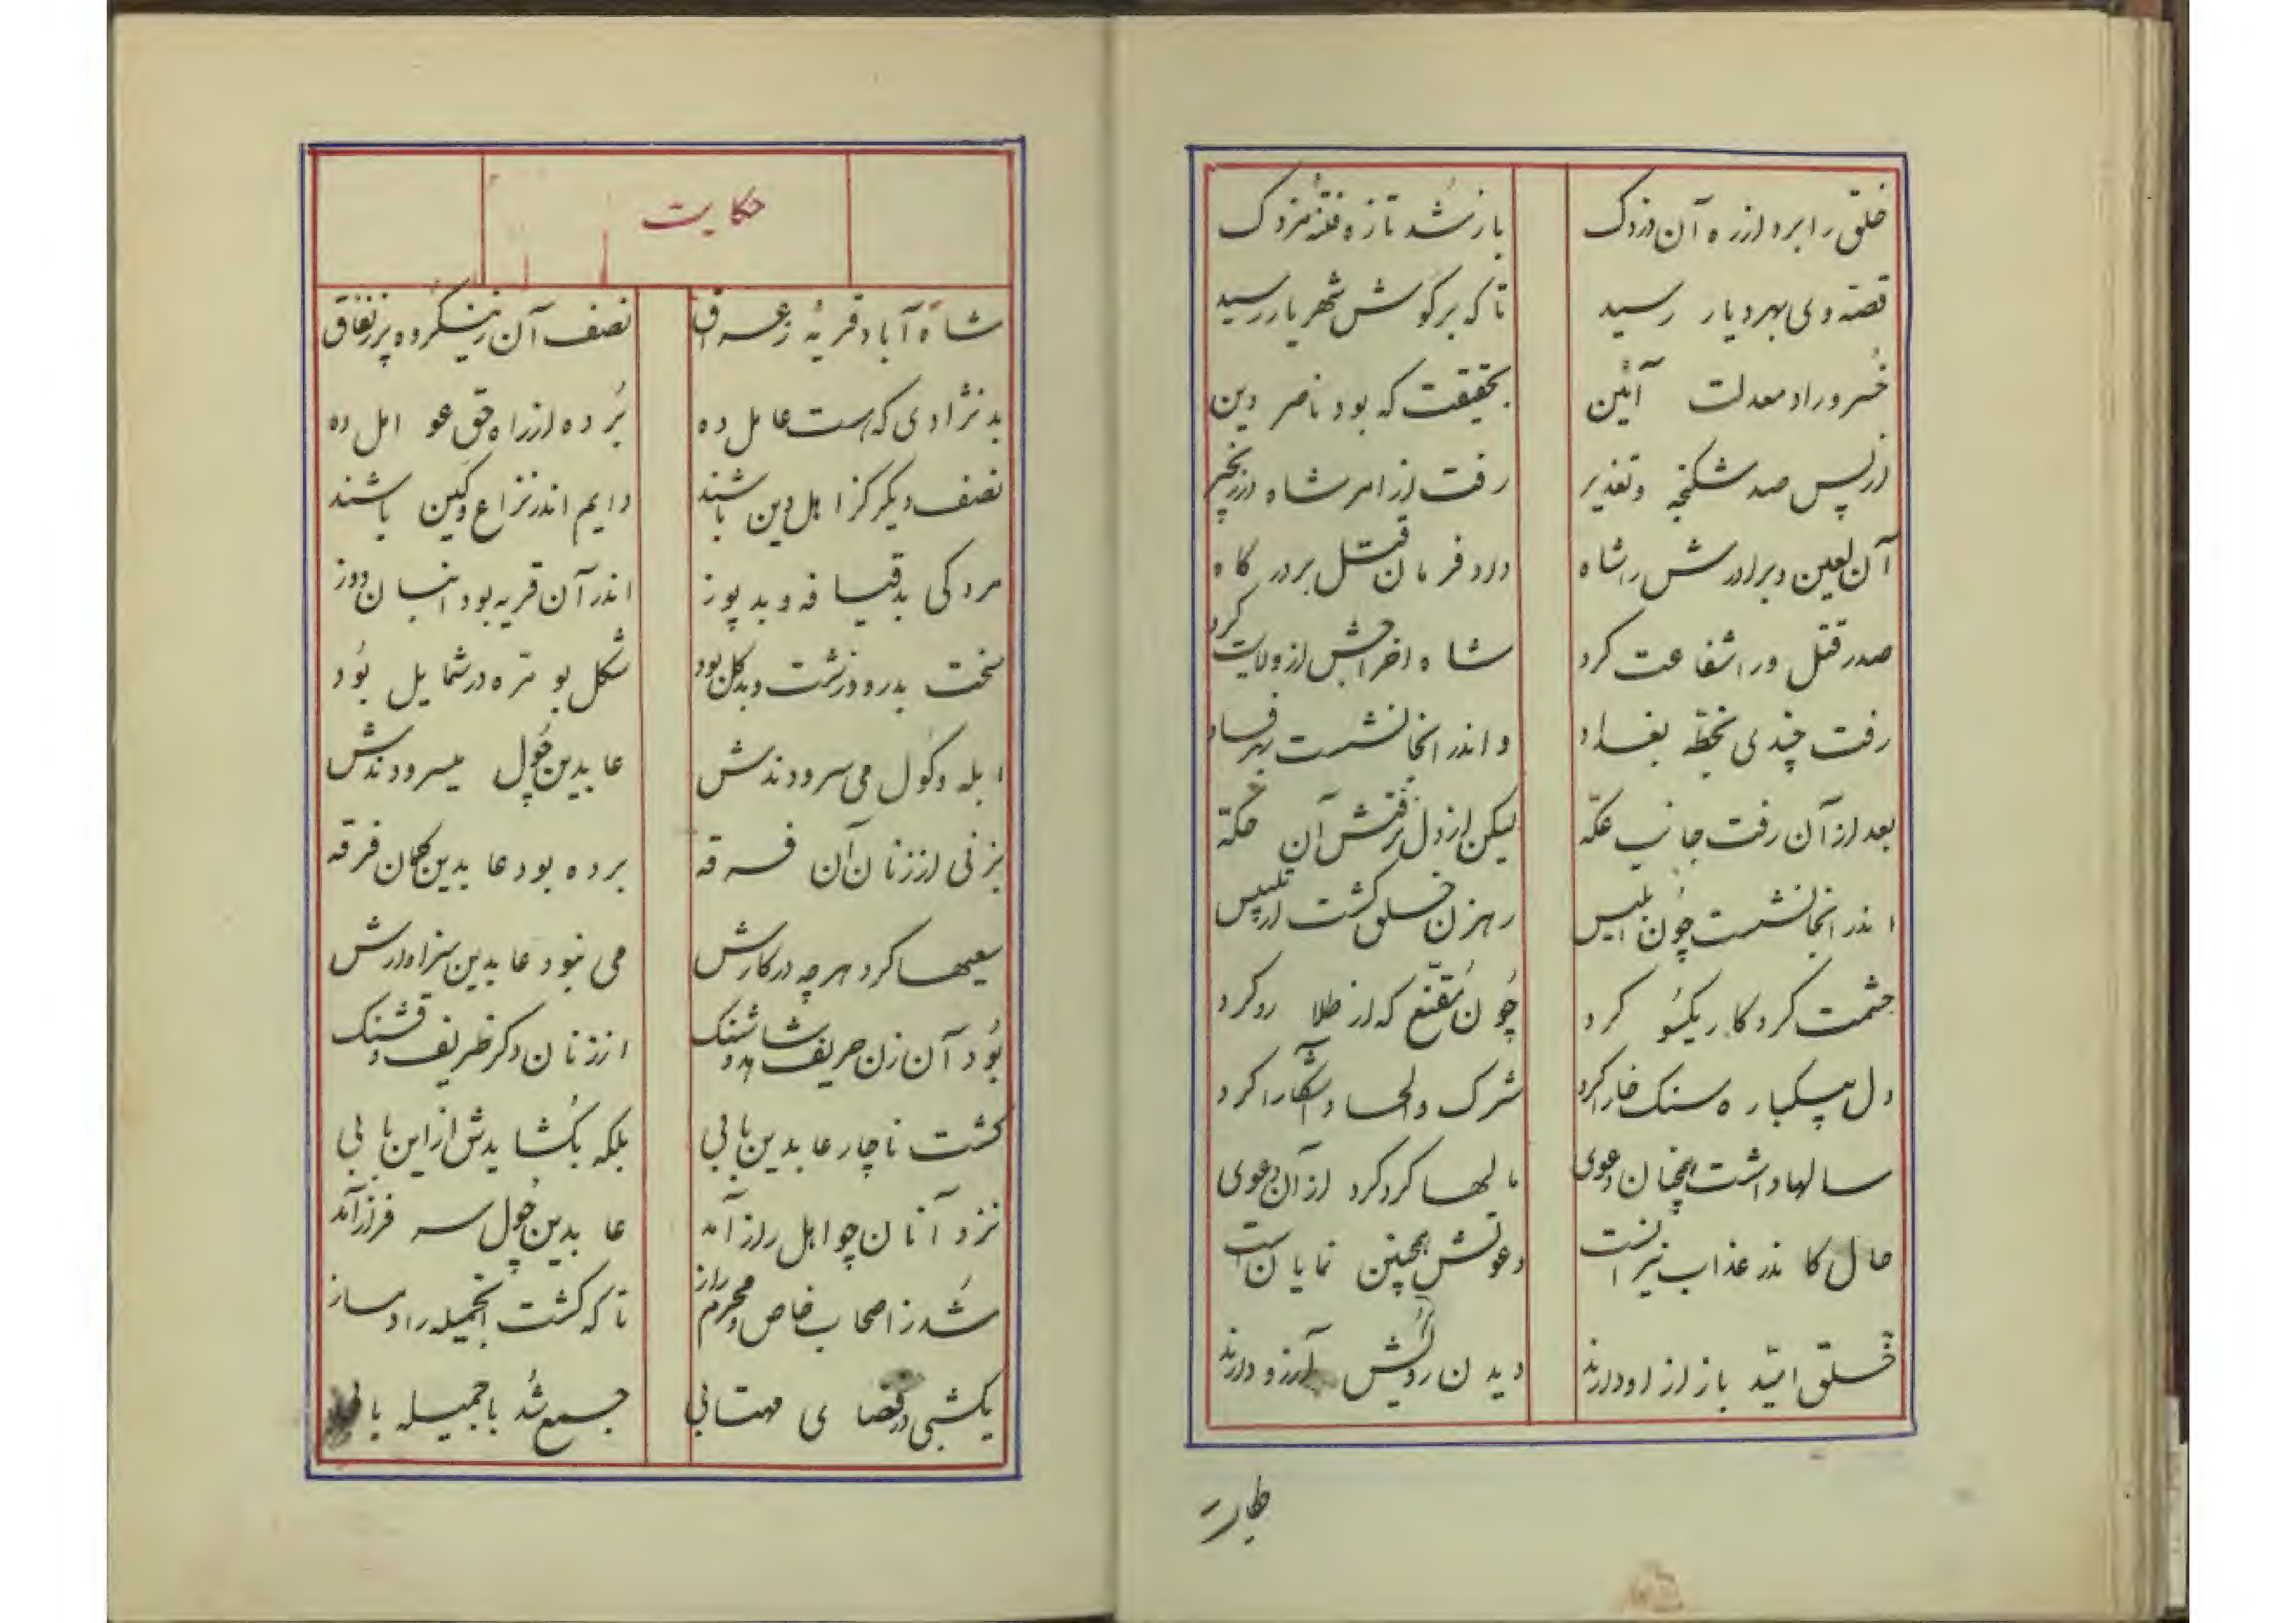 خلق را برد از ره آن دزدک    باز شد تازه فتنهٔ مزدک
قصه وی بهر دیار رسید    تا که بر گوش شهریار رسید
خُسرو راد معدلت آئین    بحقیقت که بود ناصر دین
از پس صد شکنجه و تعذیر    رفت از امر شاه در زنجیر
آن لعین و برادرش را شاه    داد فرمان قتل بر درگاه
صدر قتل ورا شفاعت کرد    شاه اخراجش از ولایت کرد
رفت چندی بخطّه بغداد    و اندر انجا نشست بهر فساد
بعد از آن رفت جانب عکّه    لیکن از دل نرفتش آن حکّه
اندر انجا نشست چون ابلیس    رهزن خلق گشت از تلبیس
حشمت کردگار یکسُو کرد    چُون مُقنّع که از طلا رو کرد
دل بیکباره سنک خارا کرد    شرک و الحاد آشکارا کرد
سالها داشت همچنان دعوی    مالها کرد کرد از آن دعوی
حال کاندر عذاب نیرانست    دعوتش همچنین نمایان است
خلق امّید باز از او دارند    دیدن رویش آرزو دارند
حکایت
شاه آباد قریهٔ ز عراق    نصف آن زین گروه پر ز نفاق
بد نژادی که هست عامل ده    بُرده از راه حق عو اهل ده
نصف دیگر کز اهل دین باشند    دایم اندر نزاع و کین باشند
مردکی بد قیافه و بد پوز    اندر آن قریه بود انبان دوز
سخت بدرو و زشت و بد گل بود    شکل بو متره در شمایل بود
ابله و گول می سرودندش    عابدین چُول میسرودندش
بزنی از زنان آن فرقه    برده بود عابدین گمان فرقه
سعیها کرد هر چه در کارش    می نبود عابدین سزاوارش
بُود آن زن حریف شاهد و شنک    از زنان دکر ظریف و قشنک
گشت ناچار عابدین بابی    بلکه بگشایدش از این بابی
نزد آنان چو اهل راز آمد    عابدین چُول سر فراز آمد
شُد ز اصحاب خاص و محرم راز    تا که گشت آنجمیله را دمساز
یکشبی در فضای مهتابی    جمع شُد با جمیله بابی